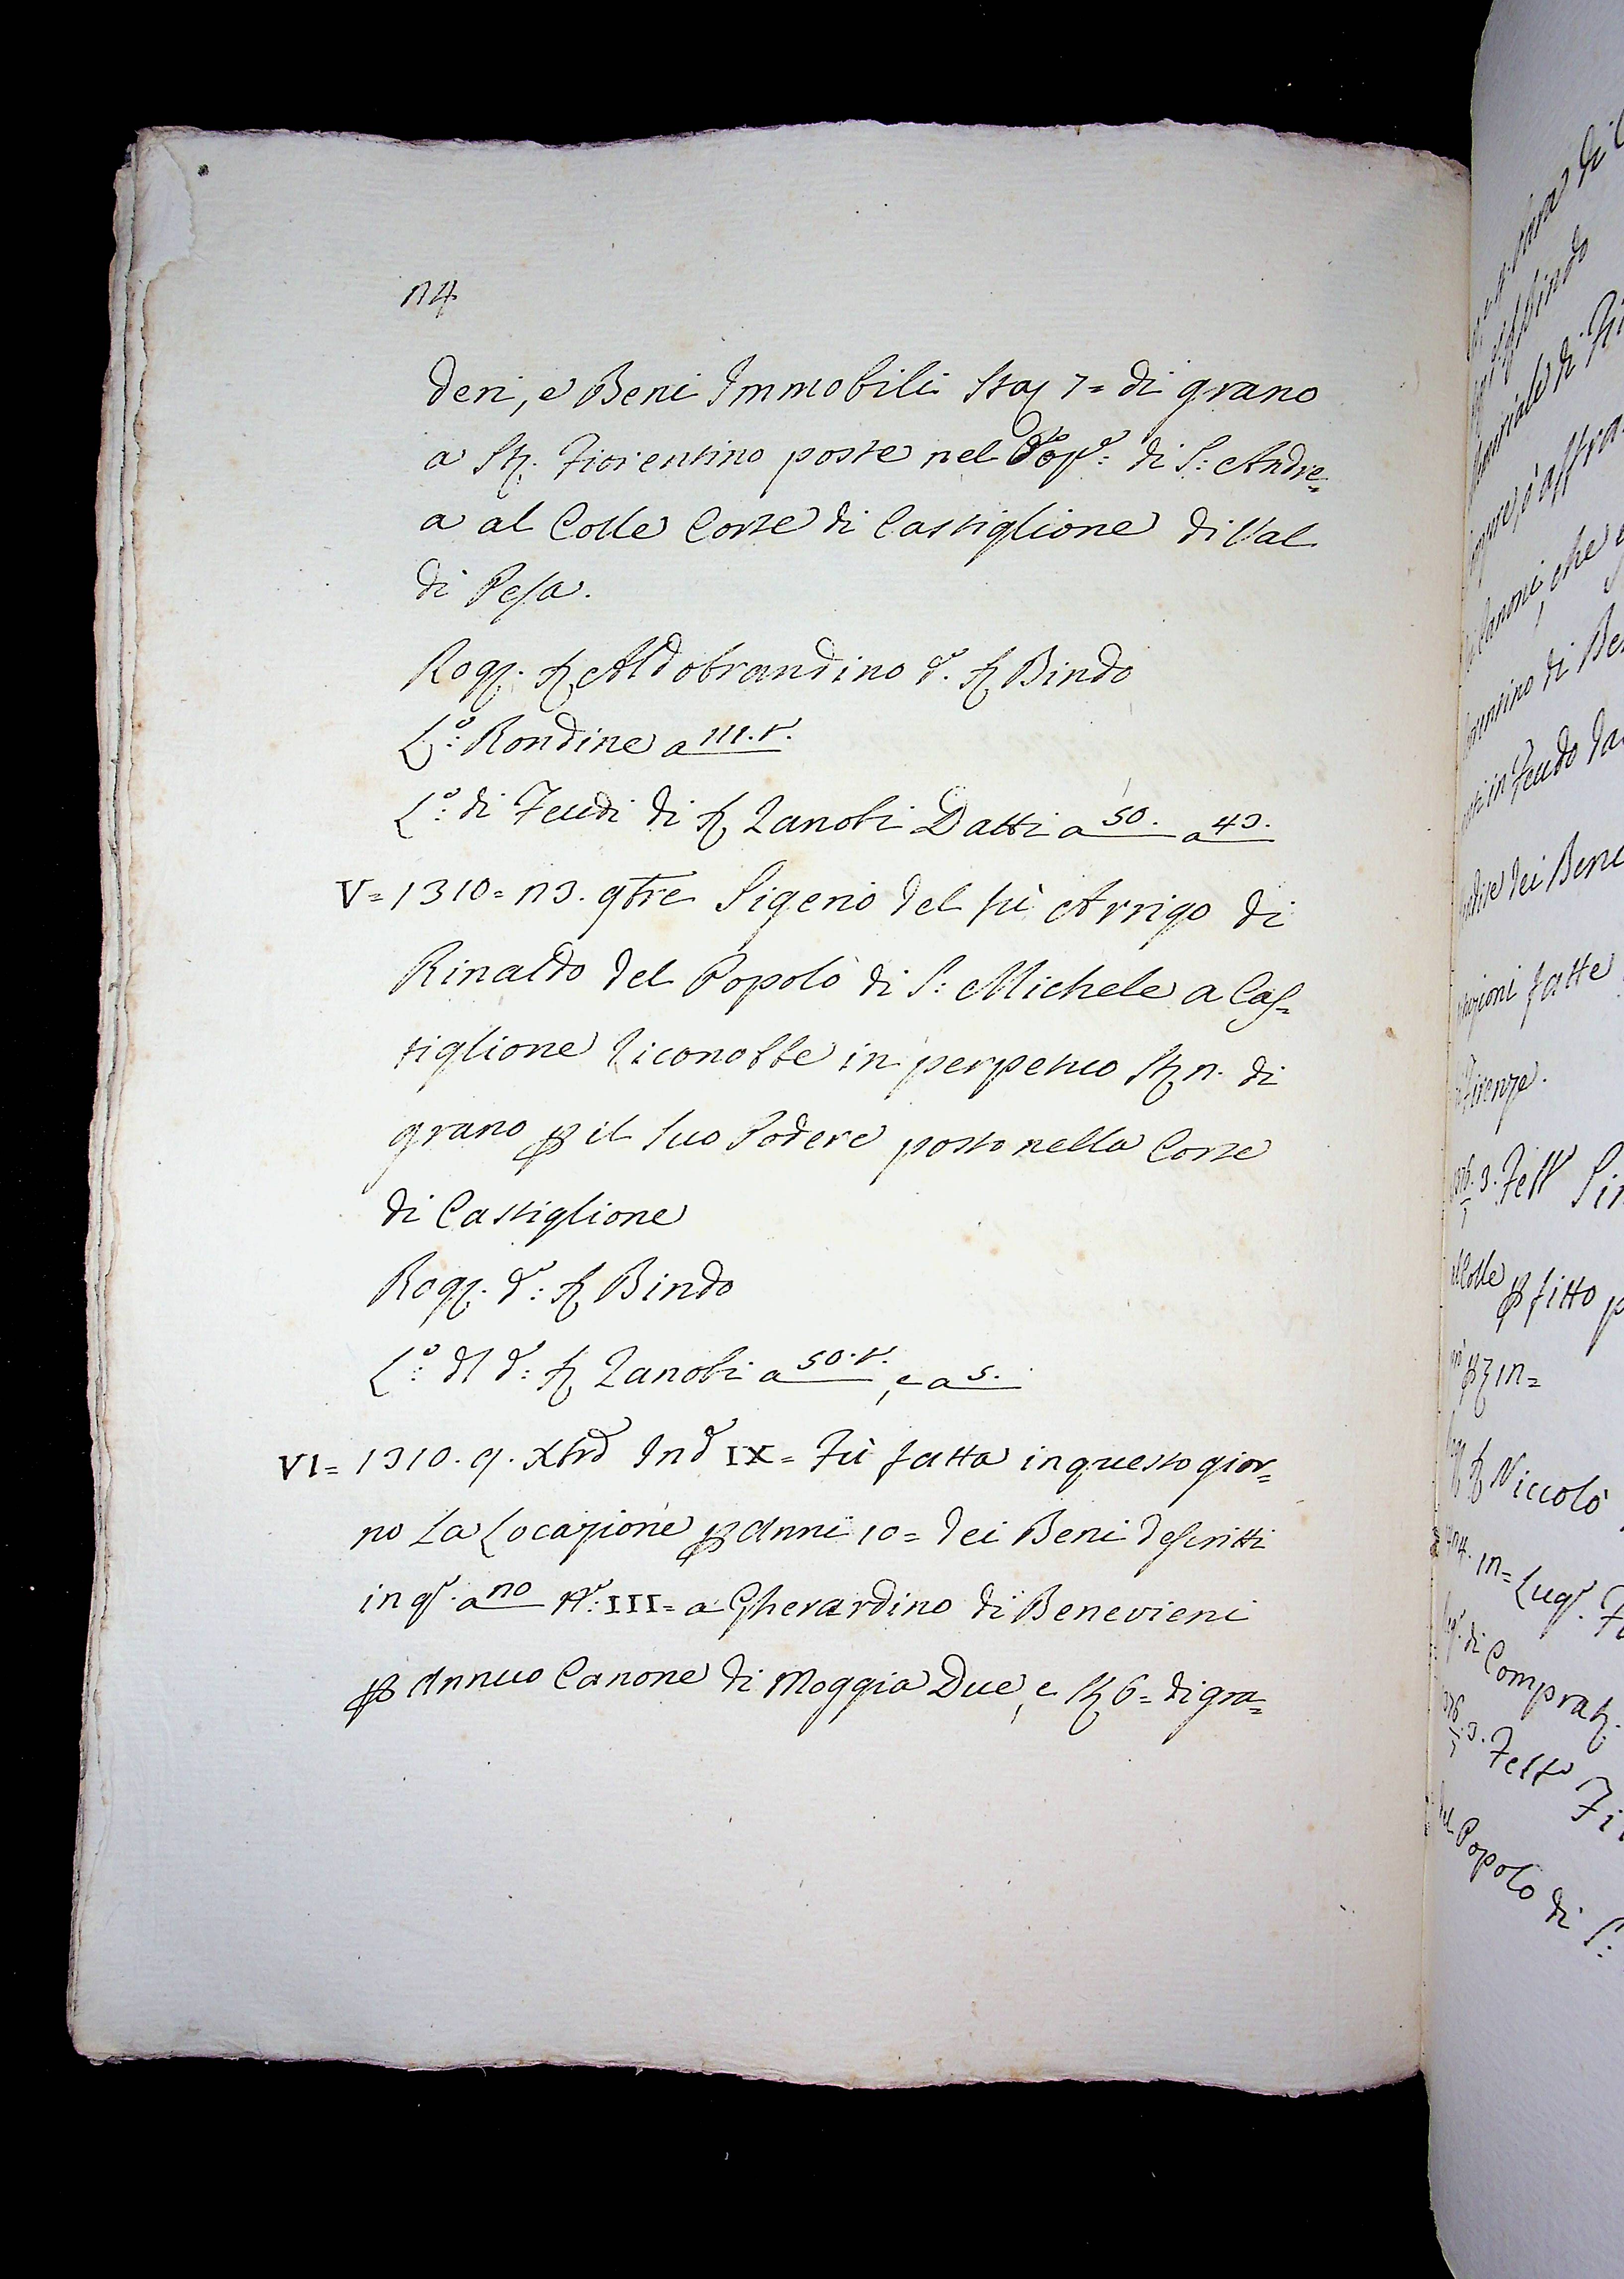 n4
deri, e Beni Immobili Staj 7= di grano
a St. Fiorentino poste nel Popo: di S: Andre=
a al Colle Corte di Castiglione di Val
di Pesa.
Rog. S. Aldobrandino do. S. Bindo
Lo: Rondine a 111.t.
Lo: di Feudi di S. Zanobi Datti a 50. a 43.
V= 1310= n3. 9bre Sigerio del fù Arrigo di
Rinaldo del Popolo di S: Michele a Cas=
tiglione riconobbe in perpetuo St. n. di
grano p il suo Podere posto nella Corte
di Castiglione
Rog. do: S. Bindo
Lo: dl do: S. Zanobi a 50.t. e a 5.
VI= 1310. 9. Xbre Ind IX= Fù fatta in questo gior=
no La Locazione p Anni 10= dei Beni descritti
in qo. a no No: III= a Gherardino di Benevieni
p Annuo Canone di Moggia Due, e St 6= di gra=
ara di
Bindo
che
di Be
in Feudo da
dei Bene
fatte
Firenze.
3. Feb
Colle p fitto p
S. Niccolò
Lugo.
di Comprat.
3. Feb
Popolo di S: